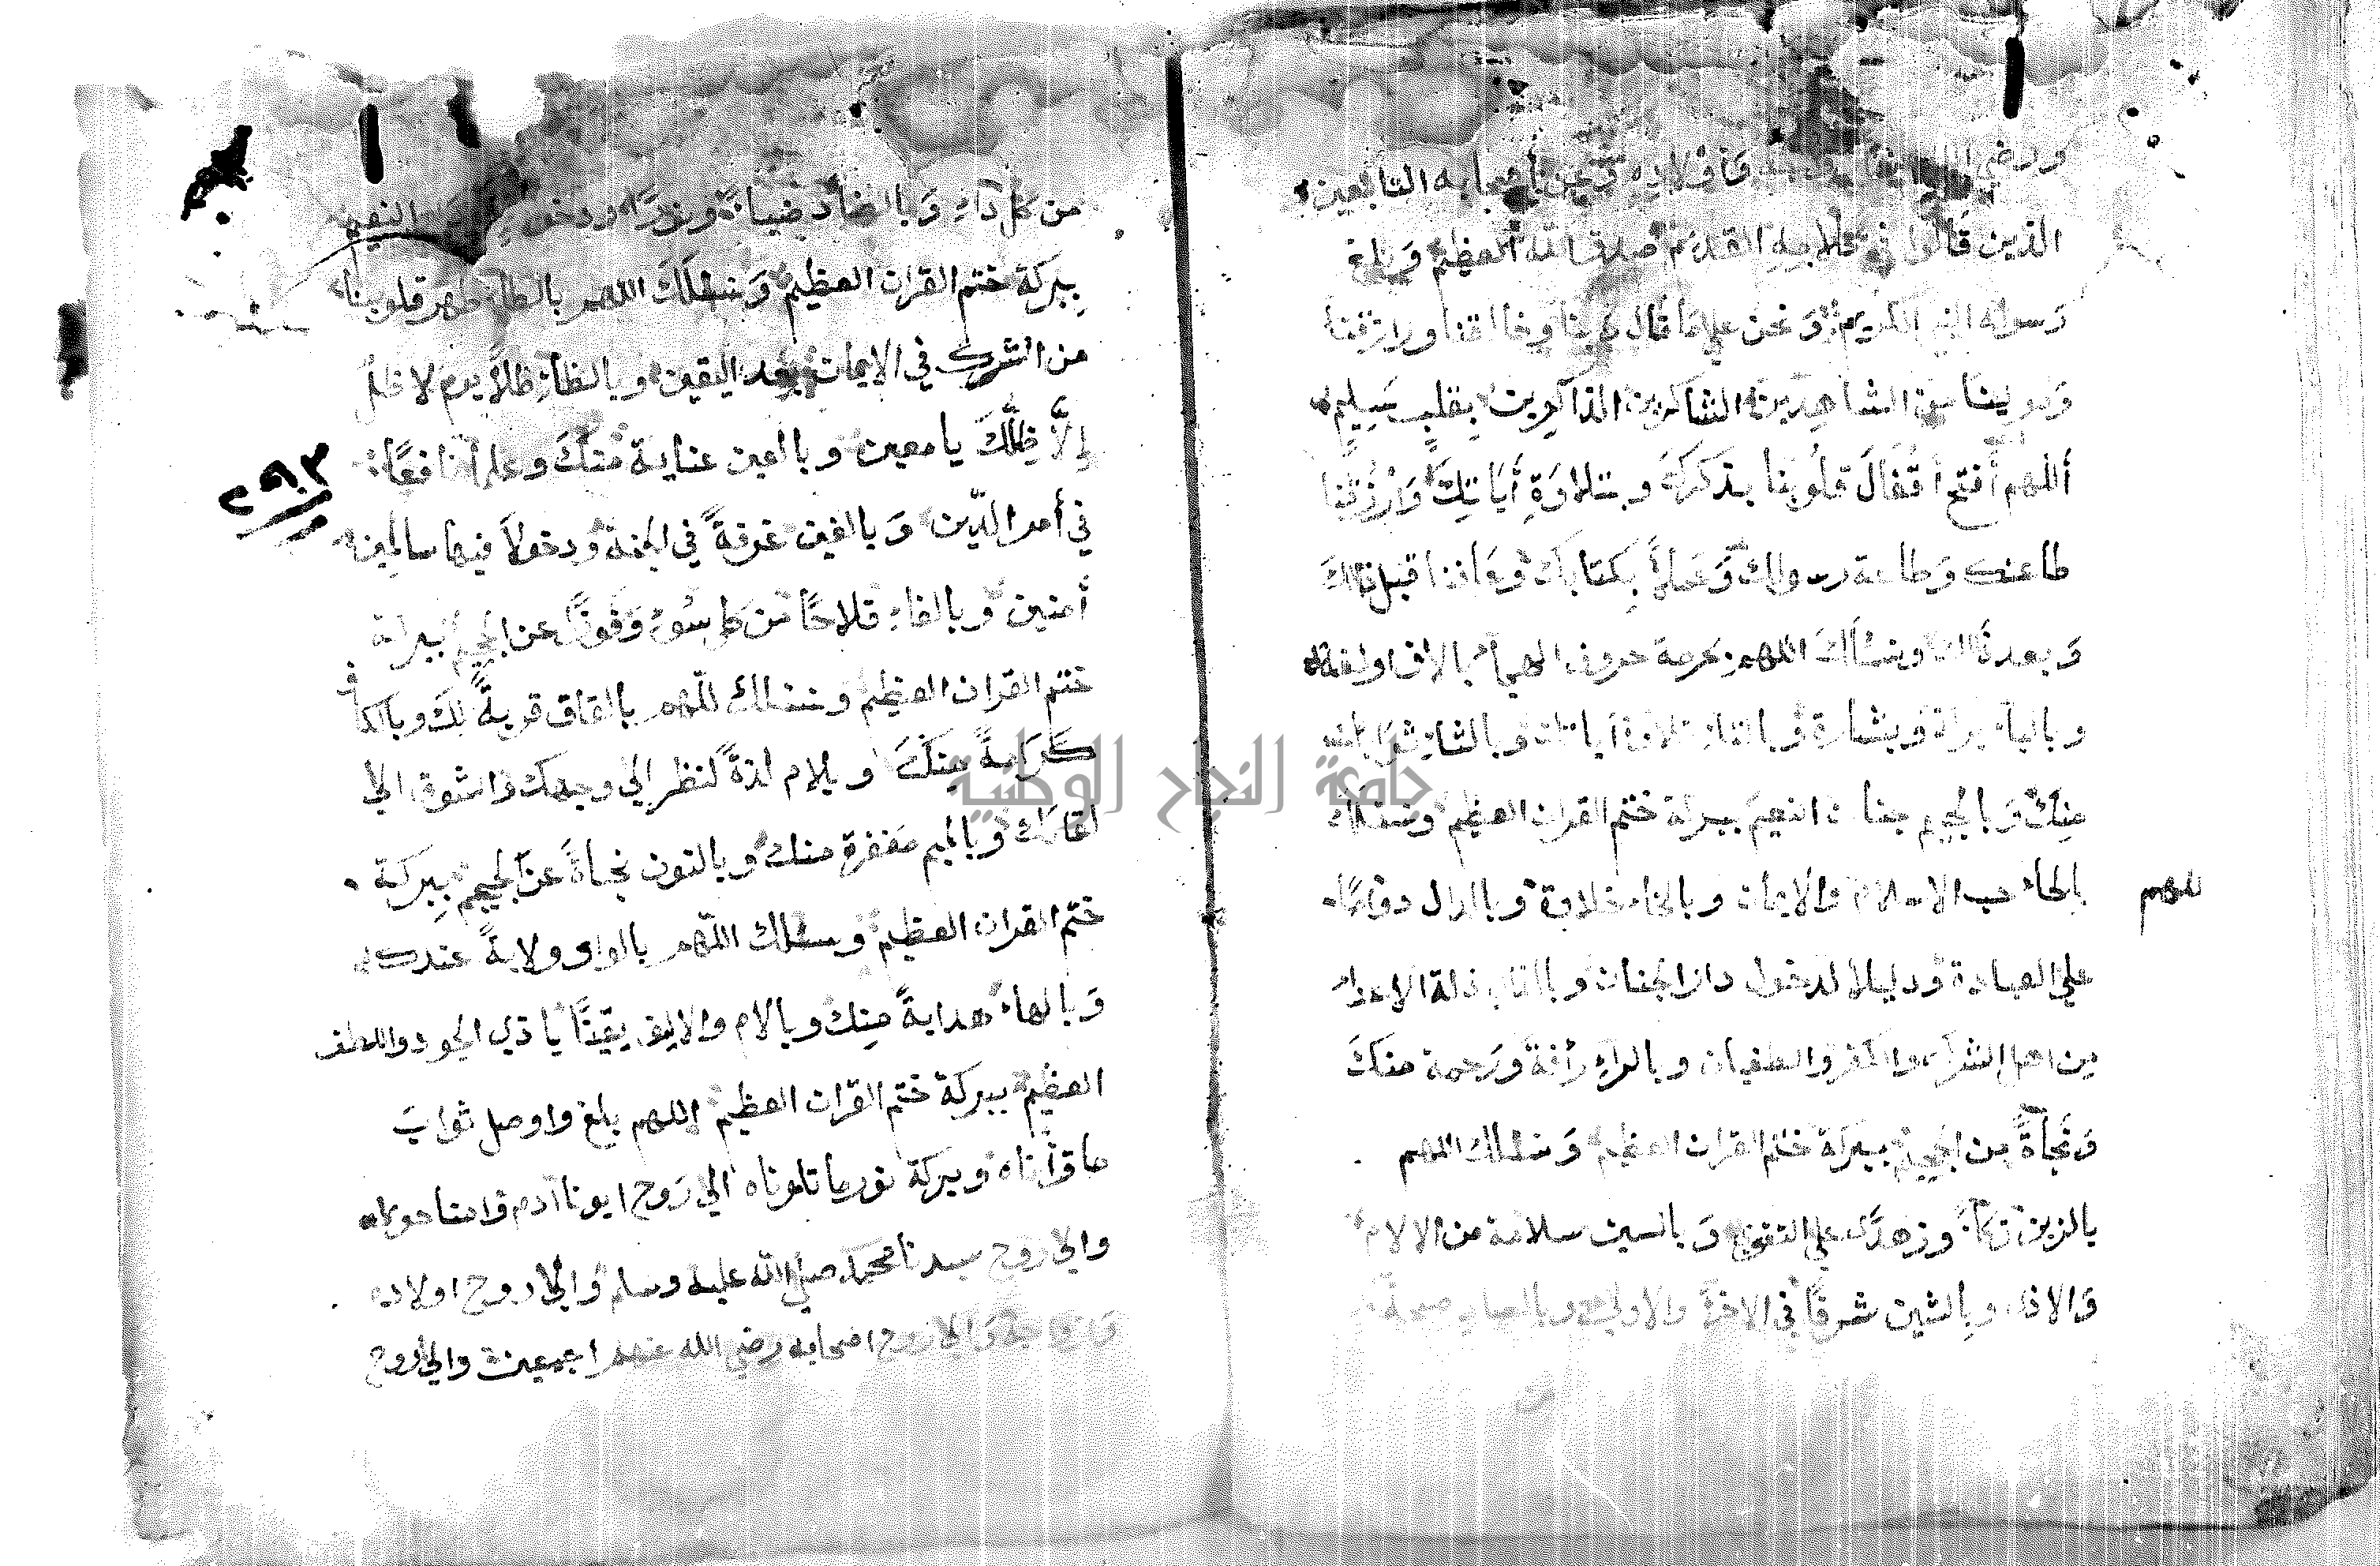 ورضي الله التابعين
الذين قالوا في كلامه القديم صدق الله العظيم وبلغ
رسوله النبي الكريم ونحن علي ما قال ربنا وخالقنا ورازقنا
ومولينا من الشاهدين الشاكرين الذاكرين بقلب سليم
أللهم أفتح أقفال قلوبنا بذكرك وبتلاوة أياتك وارزقنا
طاعتك وطاعة رسولك وعملاً بكتابك
ونسألك اللهم بحرمة حروف الهجأ بالالف اولفة
وبالبأ بركة وبشارة وبالتاء تلاوة اياتك وبالثاء ثوابا
منك وبالجيم جنات النعيم ببركة ختم القران العظيم ونسئلك
بالحاء حب الاسلام والايمان وبالخاء وبالدال دواما
للهم
علي العبادة ودليلا لدخول دار الجنان وبالذال ذلة الاعداء
من اهل الشرك والكفر والطغيان وبالراء رأفة ورحمة منك
ونجاةً من الجحيم ببركة ختم القران العظيم ونسئلك اللهم
بالزين زكاة وزهدًا علي التقوي وبالسين سلامة من الالام
وبالشين شرفًا في الاخرة والاولي وبالصاد صحة
من كل داء وبالضاد ضياءً ونورًا ودخول النعيم
ببركة ختم القران العظيم ونسئلك اللهم بالطاء طهر قلوبنا
من الشرك في الايمان بعد اليقين وبالظاء ظلاً يوم لا ظل
إلاَّ ظلَّك يا معين وبالعين عناية منك وعلما نافعًا
٢٩٠٢
في أمر الدّين وبالغين غرفةً في الجنة ودخولاً فيها سالمين
أمنين وبالفاء فلاحًا من كل سوء وفوزًا عن الجحيم ببركة
ختم القران العظيم ونسئلك للّهم بالقاف قربةً لك وبالكاف
كرامةً منك وبلام لذةً لنظر الي وجهك والشوق الي
لقائك وبالميم مغفرة منك وبالنون نجاةً عن الجحيم ببركة
ختم القران العظيم ونسئلك اللّهم بالواو ولايةً عندك
وبالهاء هدايةً منك وبالام والاليف يقينًا يا ذي الجود واللطف
العظيم ببركة ختم القران العظيم اللهم بلغ واوصل ثواب
ما قرأناه وبركة نور ما تلوناه الي روح ابونا آدم وامنا حواء
والي روح سيدنا محمد صلي الله عليه وسلم والي روح اولاده
وازواجه والي روح اصحابه رضي الله عنهم اجمعين والي روح
جامعة النجاح الوطنية